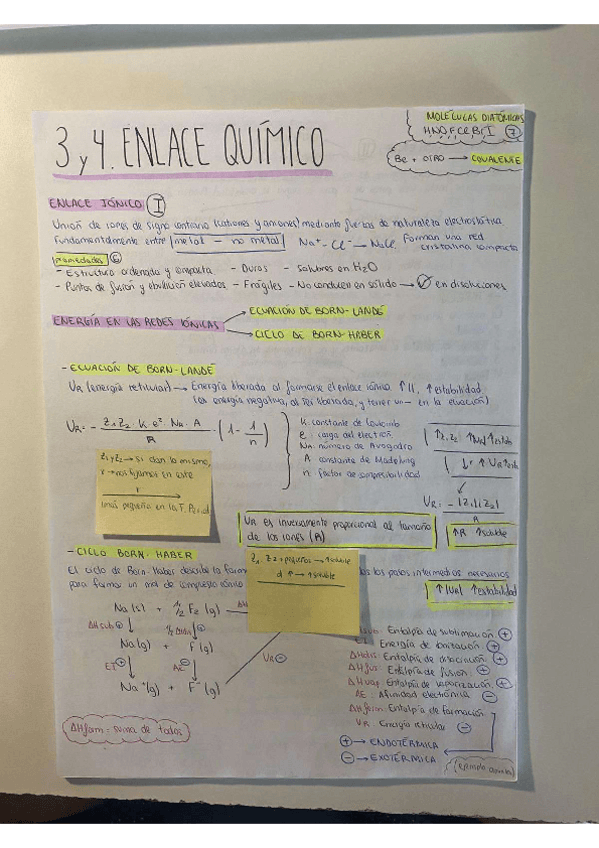 MOLÉCULAS DIATÓMICAS
HNOFClBrI 7
3 y 4. ENLACE QUÍMICO
Be + OTRO → COVALENTE
ENLACE IÓNICO I
Unión de iones de signo contrario (cationes y aniones) mediante fuerzas de naturaleza electrostática
Fundamentalmente entre metal - no metal Na+ - Cl- → NaCl. Forman una red
cristalina compacta
propiedades 6
- Estructura ordenada y compacta - Duros - Solubres en H2O
- Puntos de fusión y ebullición elevados - Frágiles - No conducen en sólido → en disoluciones
→ ECUACIÓN DE BORN-LANDÉ
ENERGÍA EN LAS REDES IÓNICAS
→ CICLO DE BORN-HABER
- ECUACIÓN DE BORN-LANDÉ
UR (energía reticular) → Energía liberada al formarse el enlace iónico. ↑ U, ↑ estabilidad
(es energía negativa, al ser liberada, y tener un - en la ecuación)
UR = - Z1 Z2 · K · e² · NA · A / R · (1 - 1/n)
K: constante de Coulomb
e: carga del electrón
NA: número de Avogadro
A: constante de Madelung
n: factor de compresibilidad
↓ r ↑ UR ↑ estab
UR = - |Z1||Z2| / R
Z1 y Z2 → si dan lo mismo,
r → nos fijamos en este
r
UR es inversamente proporcional al tamaño
de los iones (R)
↑R ↑ soluble
- CICLO BORN-HABER
El ciclo de Born-Haber describe la
los pasos intermedios necesarios
para formar un mol de compuesto iónico
Z1, Z2 + pequeños → ↑ soluble
d ↑ → ↑ soluble
↑ |UR| ↑ estabilidad
Na (s) + 1/2 F2 (g)
ΔHsub + ↓
Na(g) + F(g)
EI + ↓ AE - ↓
Na+(g) + F-(g)
UR -
Entalpía de sublimación +
EI: Energía de ionización +
ΔHdis: Entalpía de disociación +
ΔHfus: Entalpía de fusión +
ΔHvap: Entalpía de vaporización +
AE: Afinidad electrónica -
ΔHform: Entalpía de formación
UR: Energía reticular -
ΔHform = suma de todos
+ → ENDOTÉRMICA
- → EXOTÉRMICA